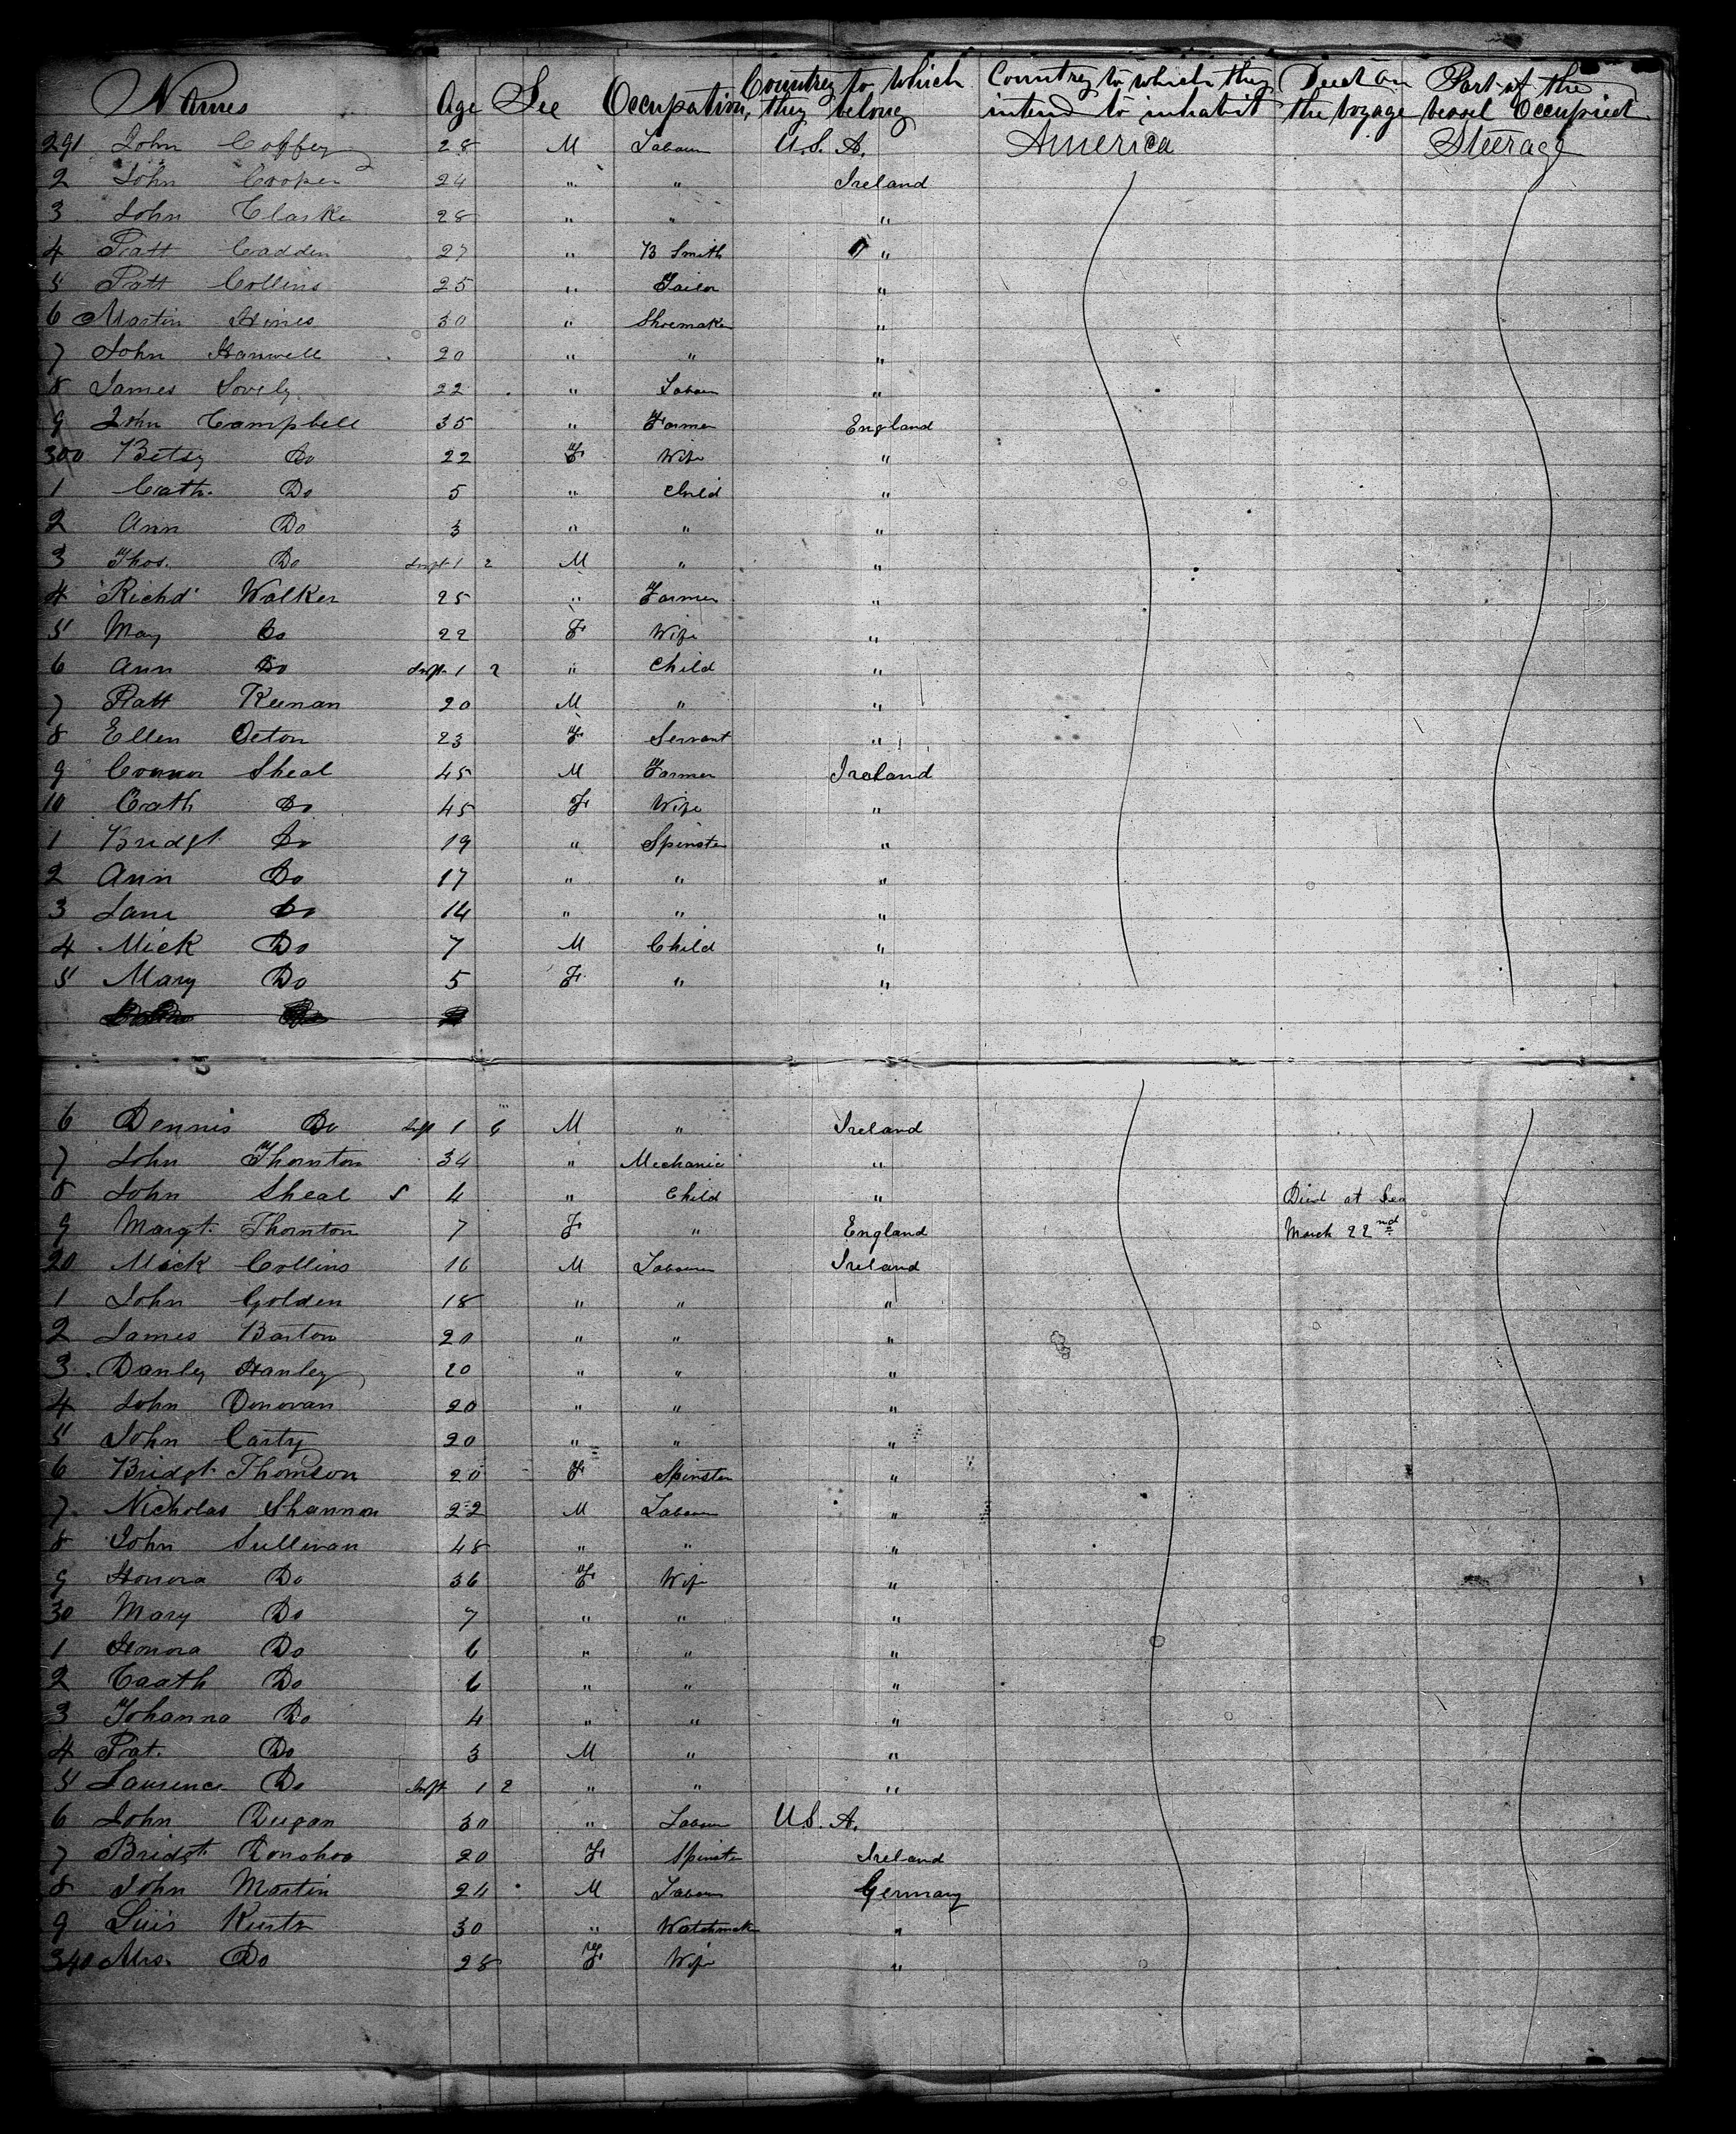 Names Age Sex Occupation, Country to which they belong Country to which they intend to inhabit Died on the voyage Part of the vessel Occupied
291 John Coffey 28 M Labour U.S. A. America Steerage
2 John Cooper 24 " " Ireland
3 John Clarke 28 " " "
4 Patt Cadden 27 " B Smith "
5 Patt Collins 25 " Tailor "
6 Martin Hines 30 " Shoemaker "
7 John Hanwell 20 " " "
8 James Lovely 22 " Labour "
9 John Campbell 35 " Farmer England
300 Betsy Do 22 F Wife "
1 Cath. Do 5 " Child "
2 Ann Do 3 " " "
3 Thos. Do Inft 1 2 M " "
4 Richd Walker 25 " Farmer "
5 Mary Do 22 F Wife "
6 Ann Do Inft 1 2 " Child "
7 Patt Keenan 20 M " "
8 Ellen Octon 23 F Servant "
9 Connor Sheal 45 M Farmer Ireland
10 Cath Do 45 F Wife "
1 Bridgt Do 19 " Spinster "
2 Ann Do 17 " " "
3 Jane Do 14 " " "
4 Mick Do 7 M Child "
5 Mary Do 5 F " "
6 Dennis Do Inft 1 6 M " Ireland
7 John Thornton 34 " Mechanic "
8 John Sheal 4 " Child " Died at Sea
9 Margt. Thornton 7 F " England March 22nd
20 Mick Collins 16 M Labourer Ireland
1 John Golden 18 " " "
2 James Barton 20 " " "
3 Danley Hanley 20 " " "
4 John Donovan 20 " " "
5 John Carty 20 " " "
6 Bridgt Thomson 20 F Spinster "
7 Nicholas Shannon 22 M Labour "
8 John Sullivan 48 " " "
9 Honora Do 36 F Wife "
30 Mary Do 7 " " "
1 Honora Do 6 " " "
2 Caath Do 6 " " "
3 Johanna Do 4 " " "
4 Pat. Do 3 M " "
5 Laurence Do Inft 1 2 " " "
6 John Dugan 30 " Labour U.S. A.
7 Bridgt Donohoo 20 F Spinster Ireland
8 John Martin 24 M Labour Germany
9 Luis 30 " Watchmak "
340 Mrs. Do 28 F Wife "